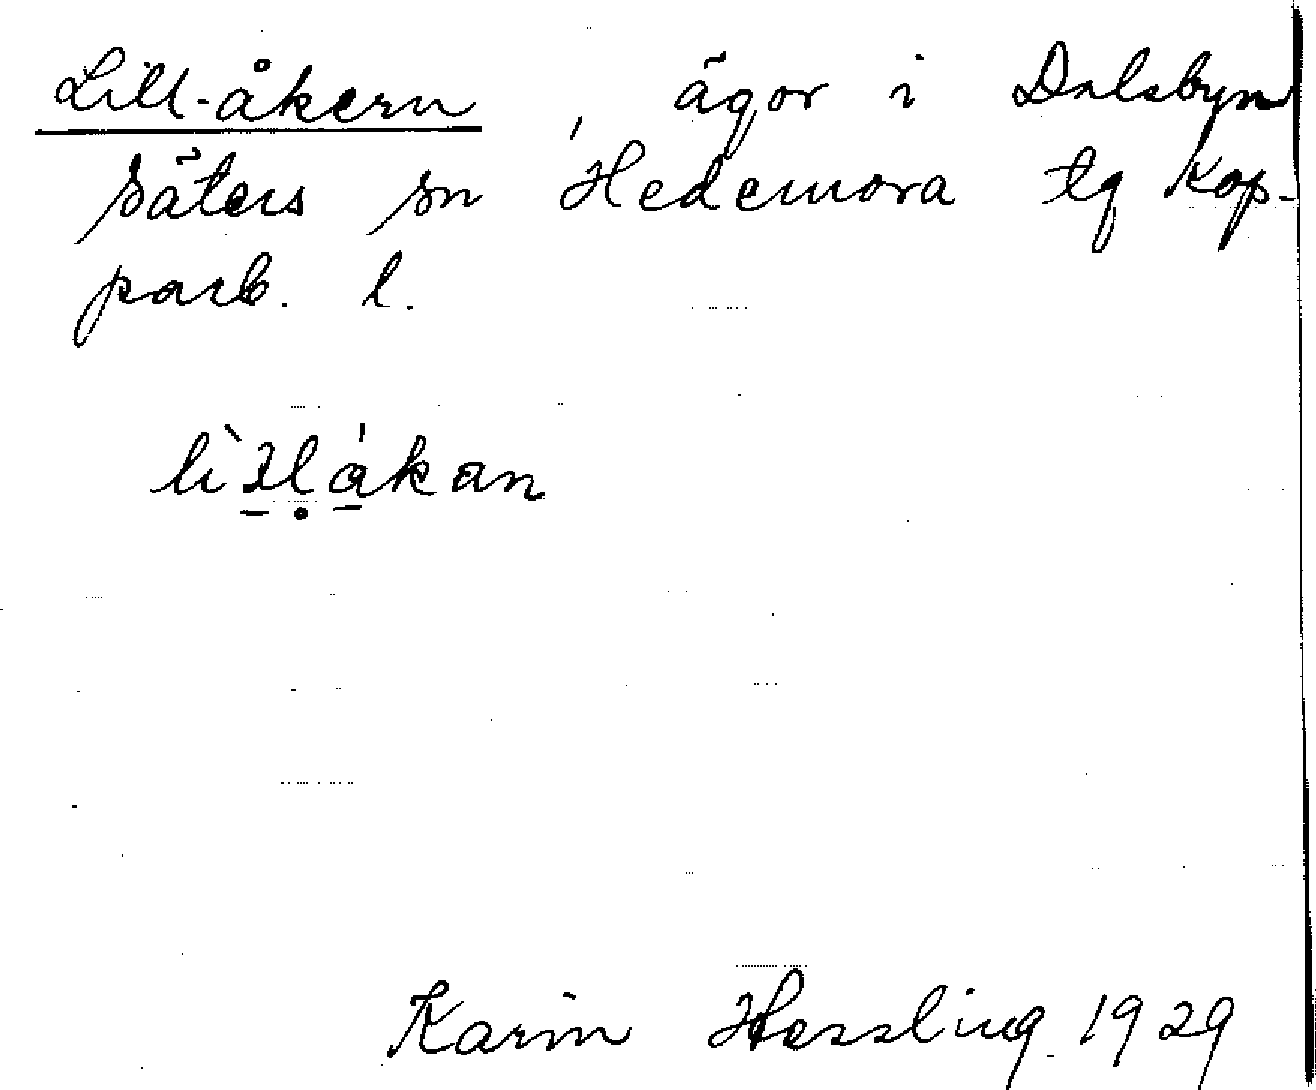 Lill-åkern, ägor i Dalsbyn
Säters sn Hedemora tg Kop-
parb. l.
Karin Hessling 1929